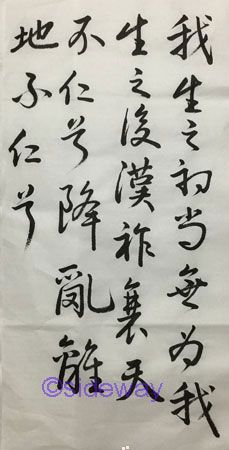 我生之初尚無為我
生之後漢祚衰天
不仁兮降亂離
地不仁兮
©sideway